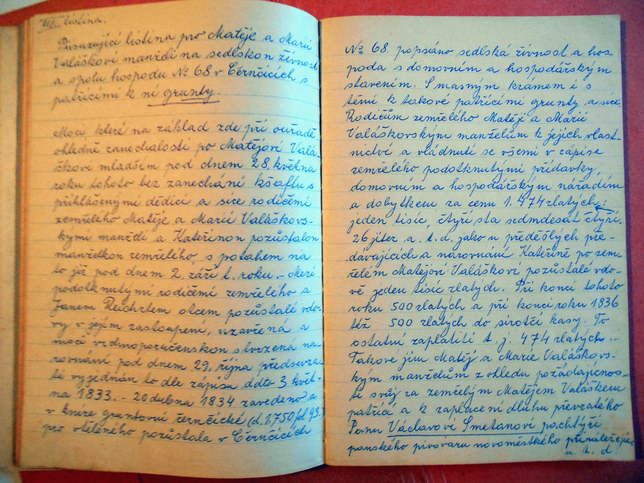 listina.
Přivazující listina pro Matěje a Marii
Valáškovi manželi na sedlskou živnost
a spolu hospodu № 68 v Černčicích s
patřícími k ní grunty.
Mocí které na základ zde při ouřadě
ohledně zanechalosti po Matějovi Valá-
škovi mladším pod dnem 28. května
roku tohoto bez zanechání kšaftu s
přihlášenými dědici a sice rodičemi
zemřelého Matěje a Marie Valáškovs-
kými manželi a Kateřinou pozůstalou
manželkou zemřelého, s potahem na
to již pod dnem 2. září t. roku.
podotknutými rodičemi zemřelého a
Janem Reichrtem otcem pozůstalé vdo-
vy v jejím zastoupení, uzavřená a
mocí vrchnoporučenskou stvrzená na-
rovnání pod dnem 29. října předsevza-
té vyjednán to dle zápisu ddto 3 květ-
na 1833. - 20 dubna 1834 zavedeno v
knize gruntovní černčické (d. 1,750 fol 43.)
pro ctěleného pozůstala v Černčicích
№ 68. popsáno sedlská živnost a hos
poda s domovním a hospodářským
stavením. S masným krámem i s
těmi k takové patřícími grunty, a sice
Rodičům zemřelého Matěji a Marii
Valáškovským manželům k jejich vlast-
nictví a vládnutí se všemi v zápise
zemřelého podotknutými přídavky,
domovním a hospodářským nářadím
a dobytkem za cenu 1.474 zlatých:
jeden tisíc, čtyři sta sedmdesát čtyři.
26 jiter a. t. d. jako u předešlých pře-
dávajících a narovnání Kateřině po zem-
řelém Matějovi Valáškovi pozůstalé vdo-
vě jeden tisíc zlatých. Při konci tohoto
roku 500 zlatých a při konci roku 1836
též 500 zlatých do sirotčí kasy. To
ostatní zaplatiti t. j. 474 zlatých.-
Takové jim Matěj a Marie Valáškovs-
kým manželům z ohledu požadujícnos-
ti svůj za zemřelým Matějem Valáškem
patřía a k zaplacení dluhu převzatého
Panu Václavovi Smetanovi pachtýři
panského pivovaru novoměstského přináležející
a. t. d.